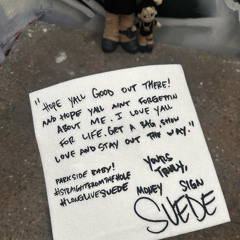 "HOPE YALL GOOD OUT THERE!
AND HOPE YALL AINT FORGETTN
ABOUT ME. I LOVE YALL
FOR LIFE. GET A BIG SHOW
LOVE AND STAY OUT THE WAY."
YOURS
TRULY,
MONEY SIGN
SUEDE
PARKSIDE BABY!
#STRAIGHTFROMTHEHOLE
#LONGLIVESUEDE